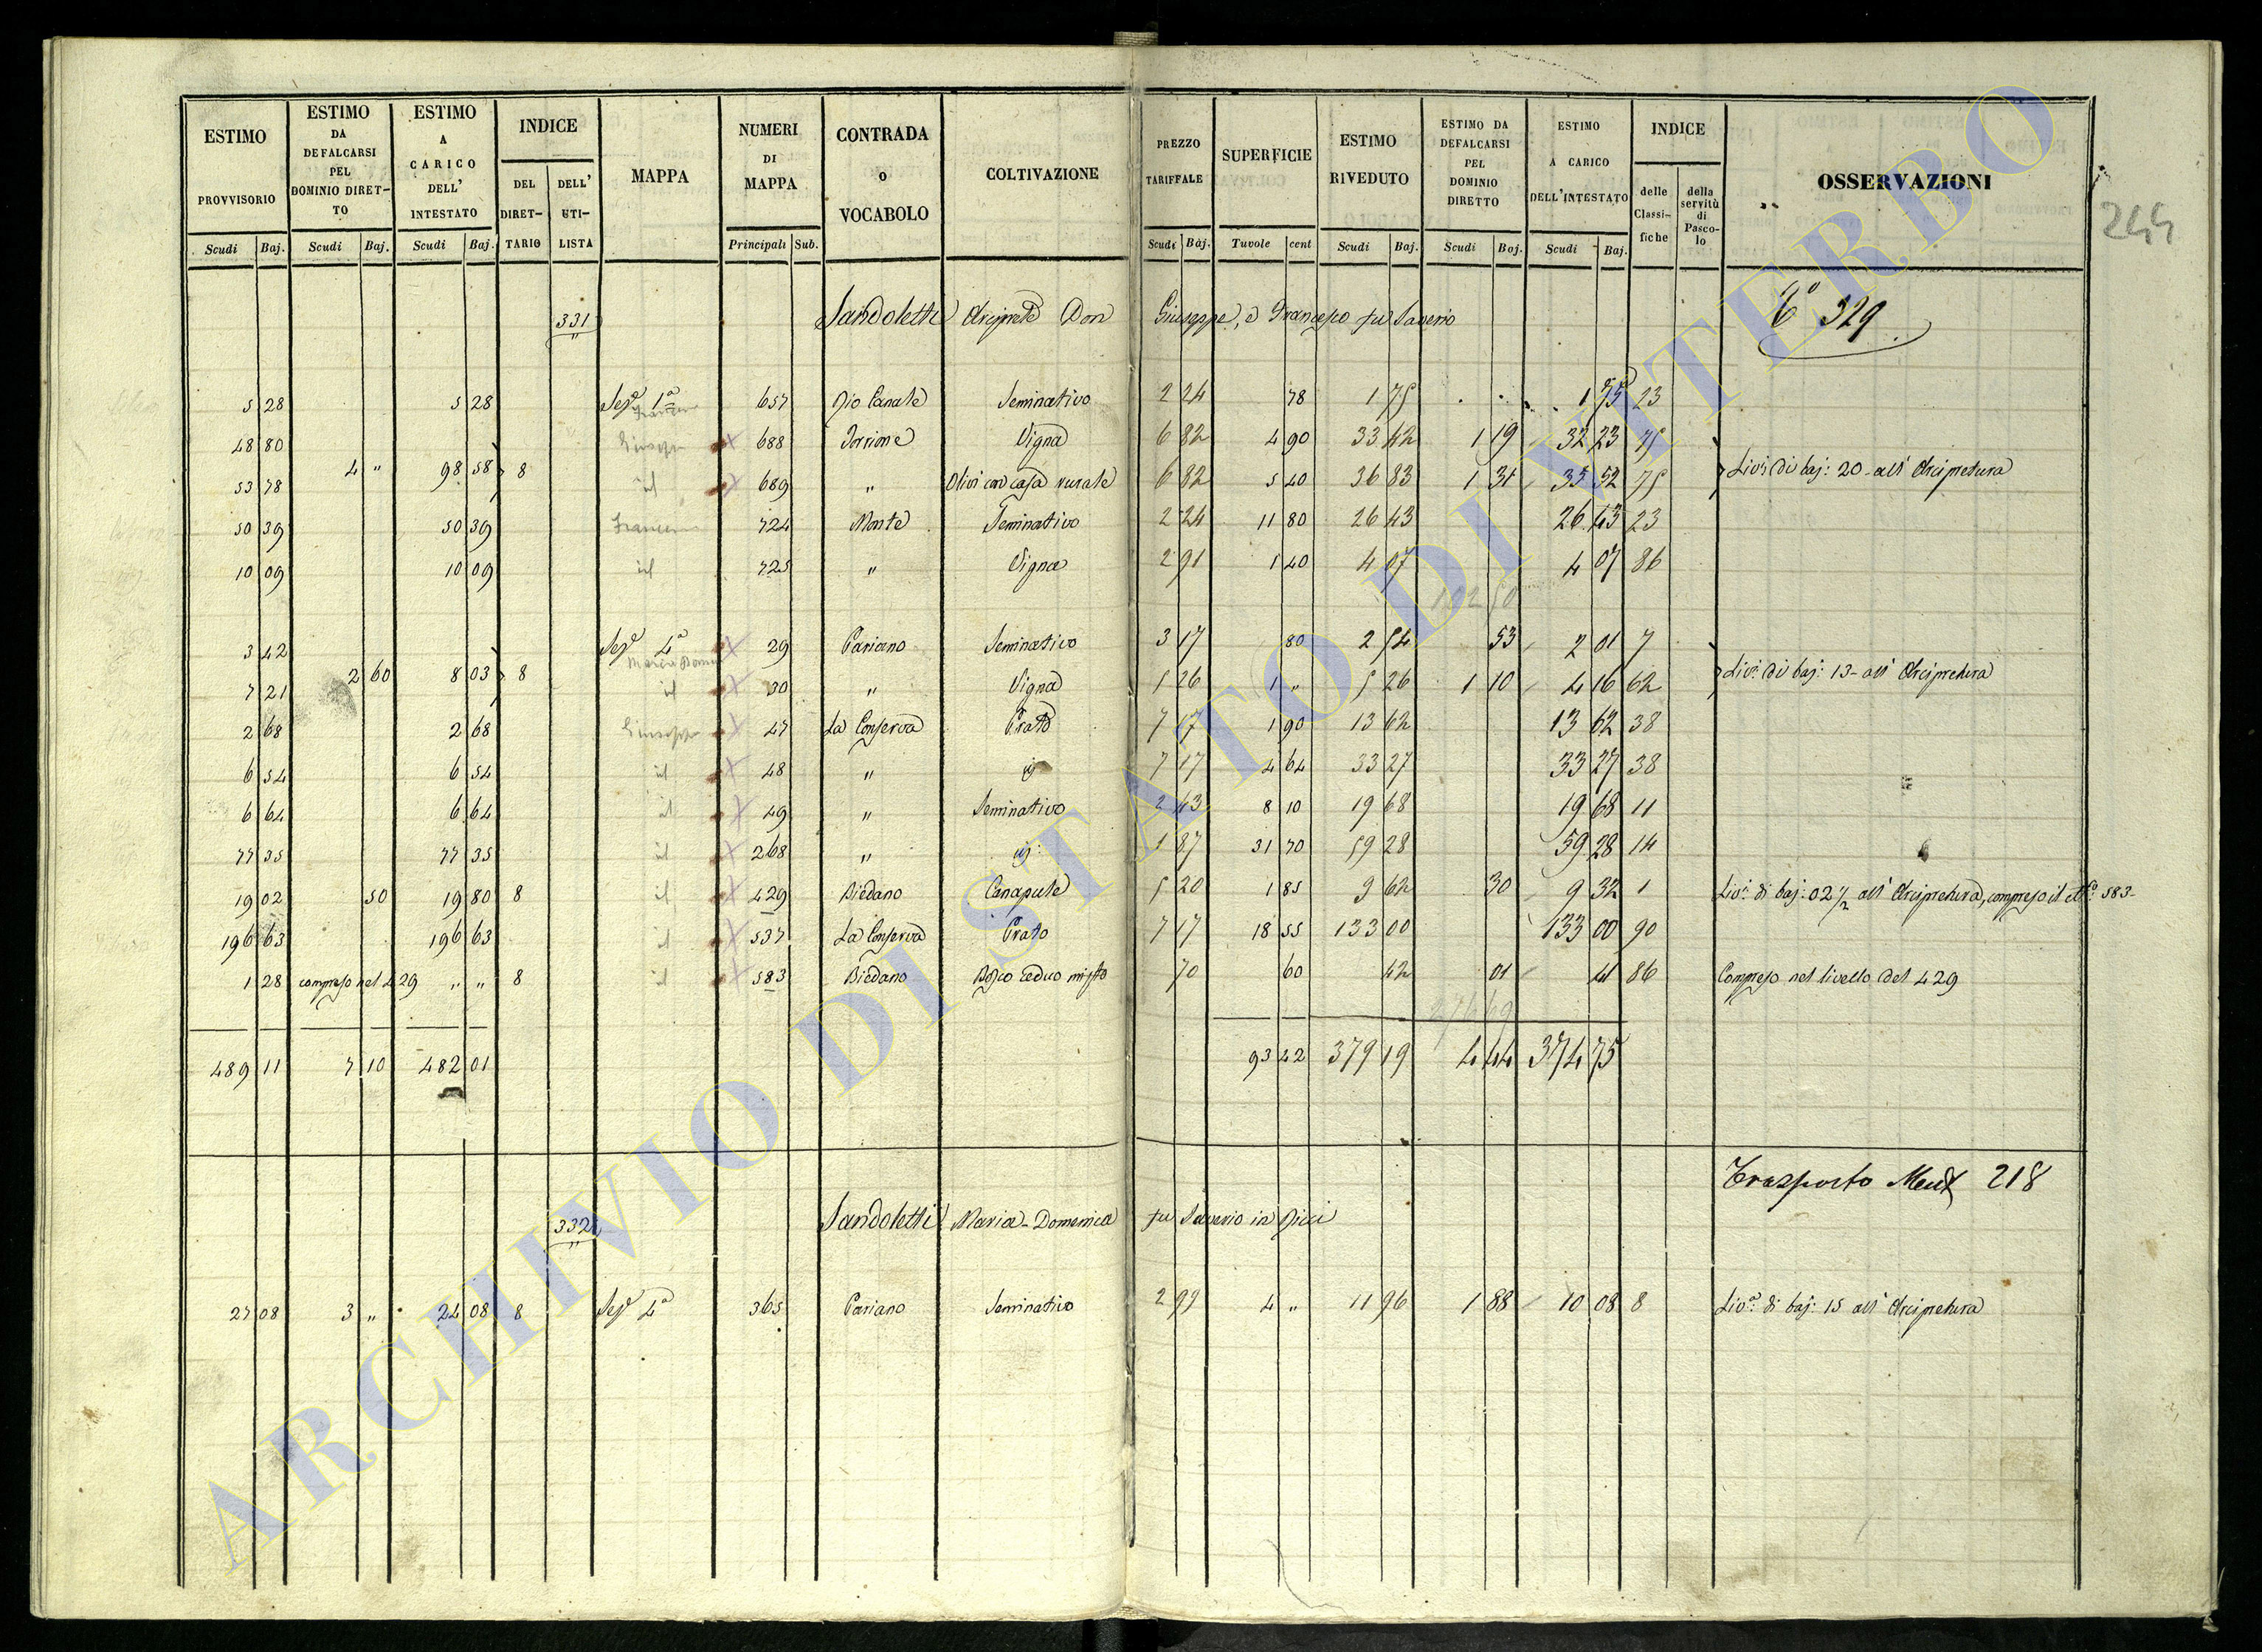 ESTIMO PROVVISORIO Scudi Baj. | ESTIMO DA DEFALCARSI PEL DOMINIO DIRETTO Scudi Baj. | ESTIMO A CARICO DELL' INTESTATO Scudi Baj. | INDICE DEL DIRET-TARIO DELL' UTI-LISTA | MAPPA | NUMERI DI MAPPA Principali Sub. | CONTRADA o VOCABOLO | COLTIVAZIONE | PREZZO TARIFFALE Scudi Baj. | SUPERFICIE Tavole cent | ESTIMO RIVEDUTO Scudi Baj. | ESTIMO DA DEFALCARSI PEL DOMINIO DIRETTO Scudi Baj. | ESTIMO A CARICO DELL'INTESTATO Scudi Baj. | INDICE delle Classi-fiche della servitù di Pasco-lo | OSSERVAZIONI
244
331 Sandoletti Arciprete Don Giuseppe, e Francesco fu Saverio 329
5 28 5 28 Sez.e 1a 657 Rio Canale Seminativo 2 24 78 1 75 1 75 23
48 80 Giuseppe 688 Torrione Vigna 6 82 4 90 33 42 1 19 32 23 75
4 " 98 58 8 Liv.o di baj: 20 all' Arcipretura
53 78 id 689 " Olivi con casa rurale 6 82 5 40 36 83 1 31 35 52 75
50 39 50 39 Franc 724 Monte Seminativo 2 24 11 80 26 43 26 43 23
10 09 10 09 id 725 " Vigna 2 91 1 40 4 07 4 07 86
102 50
3 42 Sez.e 4a 29 Pariano Seminativo 3 17 80 2 54 53 2 01 7
Maria Dom
2 60 8 03 8 Liv.o di baj: 13 all' Arcipretura
7 21 id 30 " Vigna 5 26 1 " 5 26 1 10 4 16 62
2 68 2 68 Giuseppe 47 La Conserva Prato 7 17 1 90 13 62 13 62 38
6 54 6 54 id 48 " 7 17 4 64 33 27 33 27 38
6 64 6 64 id 49 " Seminativo 2 43 8 10 19 68 19 68 11
77 35 77 35 id 268 " 1 87 31 70 59 28 59 28 14
19 02 50 19 80 8 id 429 Biedano Canapule 5 20 1 85 9 62 30 9 32 1 Liv.o di baj: 02 1/2 all' Arcipretura, compreso il 583
196 63 196 63 id 537 La Conserva Prato 7 17 18 55 133 00 133 00 90
1 28 compreso nel 429 " " 8 id 583 Biedano Bosco Ceduo misto 70 60 42 01 41 86 Compreso nel livello del 429
489 11 7 10 482 01 93 42 379 19 4 44 374 75
Trasporto 218
332 Sandoletti Maria-Domenica fu Saverio in Ricci
27 08 3 " 24 08 8 Sez.e 4a 365 Pariano Seminativo 2 99 4 " 11 96 1 88 10 08 8 Liv.o di baj: 15 all' Arcipretura
ARCHIVIO DI STATO DI VITERBO